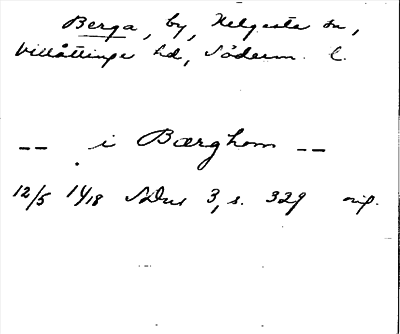 Berga, by, Helgesta sn,
Villåttinge hd, Söderm. l.
-- i Bærghom --
12/5 1418 SDns 3, s. 329 orig.